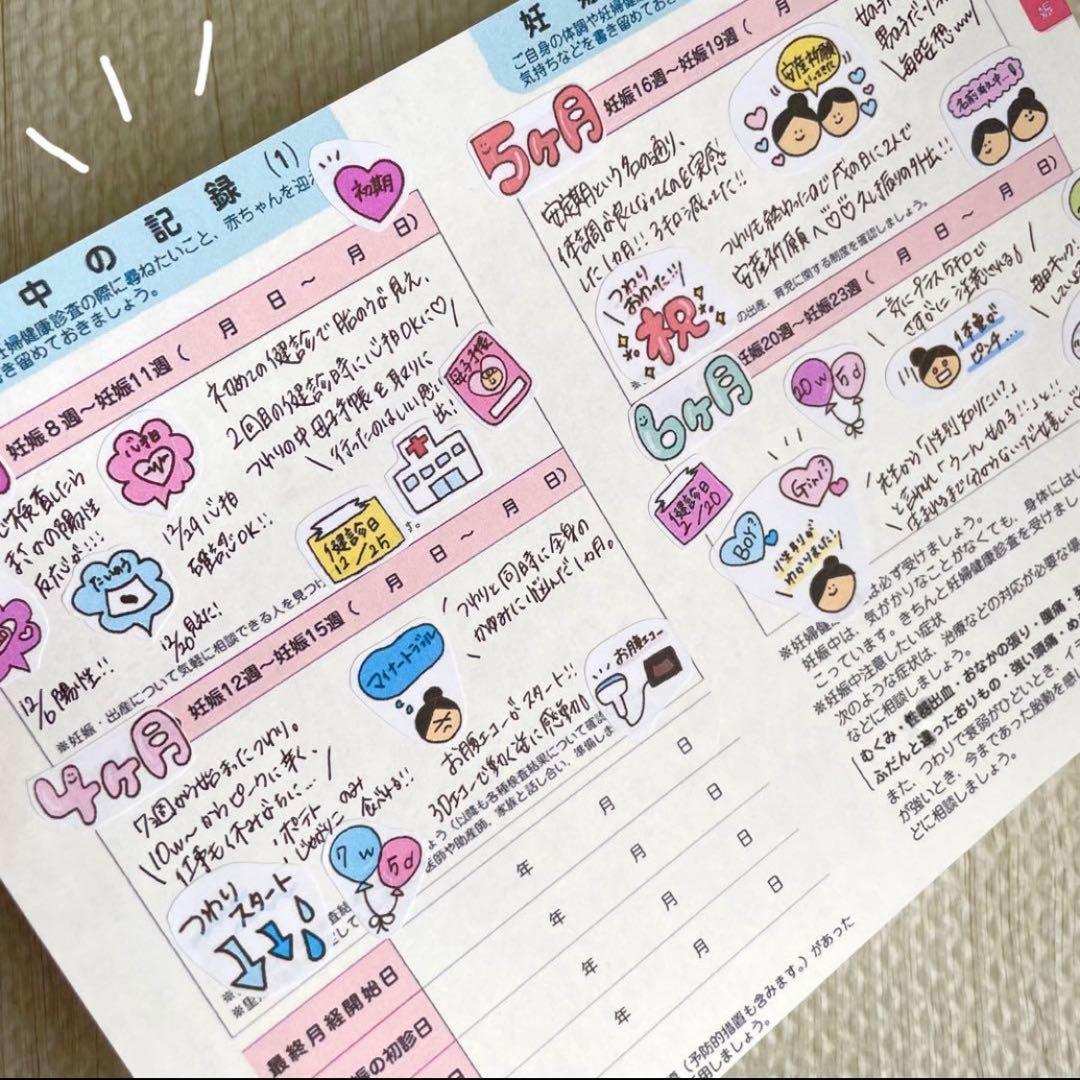 中の記録(1)
妊婦健康診査の際に尋ねたいこと、赤ちゃんを迎
き留めておきましょう。
初期
妊娠8週~妊娠11週( 月 日~ 月 日)
で検査したら
まさかの陽性
反応が!!!
12/6陽性!!
心拍
12/29心拍
確認OK!!
たいのう
12/20見えた!!
初めての健診で胎のうが見え、
2回目の健診時に心拍OKに♡
つわりの中母子手帳を取りに
行ったのはしんどい思い
出!
母子手帳
健診日
12/25
※妊娠・出産について気軽に相談できる人を見つけ
4ヶ月
妊娠12週~妊娠15週( 月 日~ 月 日)
7週から始まったつわり。
10w~からピークに辛く、
仕事も休みがちに…
ポテト
じゃがりこ
のみ
食べれる!!
つわり
スタート
7w
5d
マイナートラブル
つわりと同時に全身の
かゆみに悩んだ1ヵ月。
お腹エコーがスタート!!
3Dエコーで動く姿に感動
お腹エコー
年 月 日
年 月 日
年 月 日
年 月 日
最終月経開始日
の初診日
妊
ご自身の体調や妊婦健康
気持ちなどを書き留めておき
5ヶ月
妊娠16週~妊娠19週(
安産祈願
いってきた
男子だ
毎日妄想www
名前考え中
安定期という名の通り、
体調が良くなってくのを実感
した1ヵ月!! 3キロ減った!!
つわりも終わったので戌の日に2人で
安産祈願へ♡♡久し振りの外出!!
つわり
おわった!!
祝
の出産、育児に関する制度を確認しましょう。
6ヶ月
妊娠20週~妊娠23週( 月 日~ 月 日)
20w
5d
一気にプラス5キロで
さすがに注意される
体重が
ピンチ…
毎日キック
健診日
2/20
Boy?
Girl?
性別が
わかりました!!
先生から「性別知りたい?」
と言われ「うーん女の子!!」と!!
※妊婦健
は必ず受けましょう。
妊娠中は、気がかりなことがなくても、身体には
こっています。きちんと妊婦健康診査を受けまし
※妊娠中注意したい症状
次のような症状は、治療などの対応が必要な場
などに相談しましょう。
むくみ・性器出血・おなかの張り・腹痛・発
ふだんと違ったおりもの・強い頭痛・め
また、つわりで衰弱がひどいとき、イラ
が強いとき、今まであった胎動を感
どに相談しましょう。
(予防的措置も含みます。)があった
用しましょう。